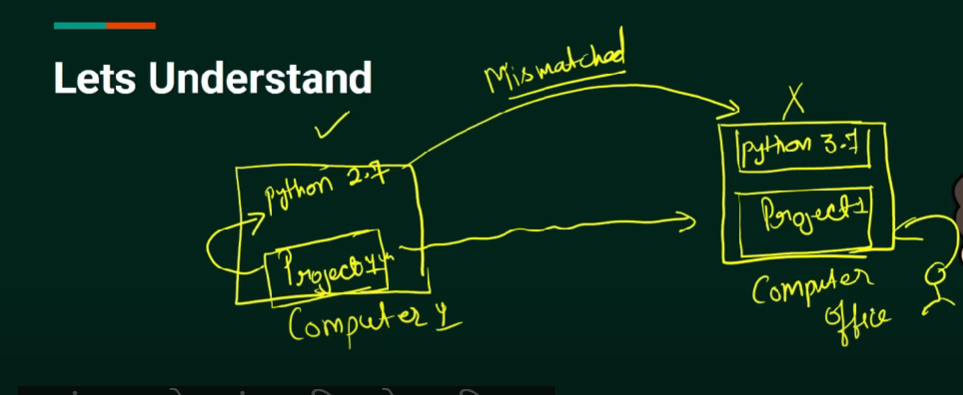 Lets Understand
Mismatched
X
python 2.7
Project1
Computer 1
python 3.7
Project1
Computer
office